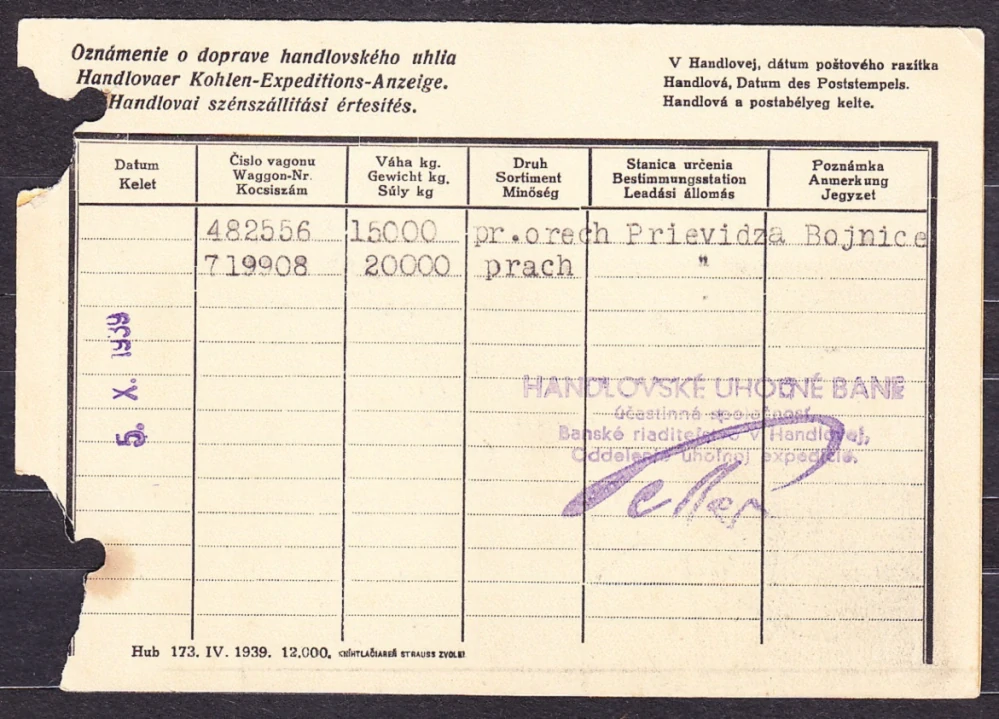 Oznámenie o doprave handlovského uhlia
Handlovaer Kohlen-Expeditions-Anzeige.
Handlovai szénszállitási értesités.
V Handlovej, dátum poštového razítka
Handlová, Datum des Poststempels.
Handlová a postabélyeg kelte.
Datum
Kelet
Čislo vagonu
Waggon-Nr.
Kocsiszám
Váha kg.
Gewicht kg.
Súly kg
Druh
Sortiment
Minöség
Stanica určenia
Bestimmungsstation
Leadási állomás
Poznámka
Anmerkung
Jegyzet
482556 15000 pr.orech Prievidza Bojnice
719908 20000 prach "
5. X. 1939
HANDLOVSKÉ UHOĽNÉ BANE
účastinná spoločnosť,
Banské riaditeľstvo v Handlovej,
Oddelenie uhoľnej expedície.
Hub 173. IV. 1939. 12.000. KNÍHTLAČIAREŇ STRAUSS ZVOLEN